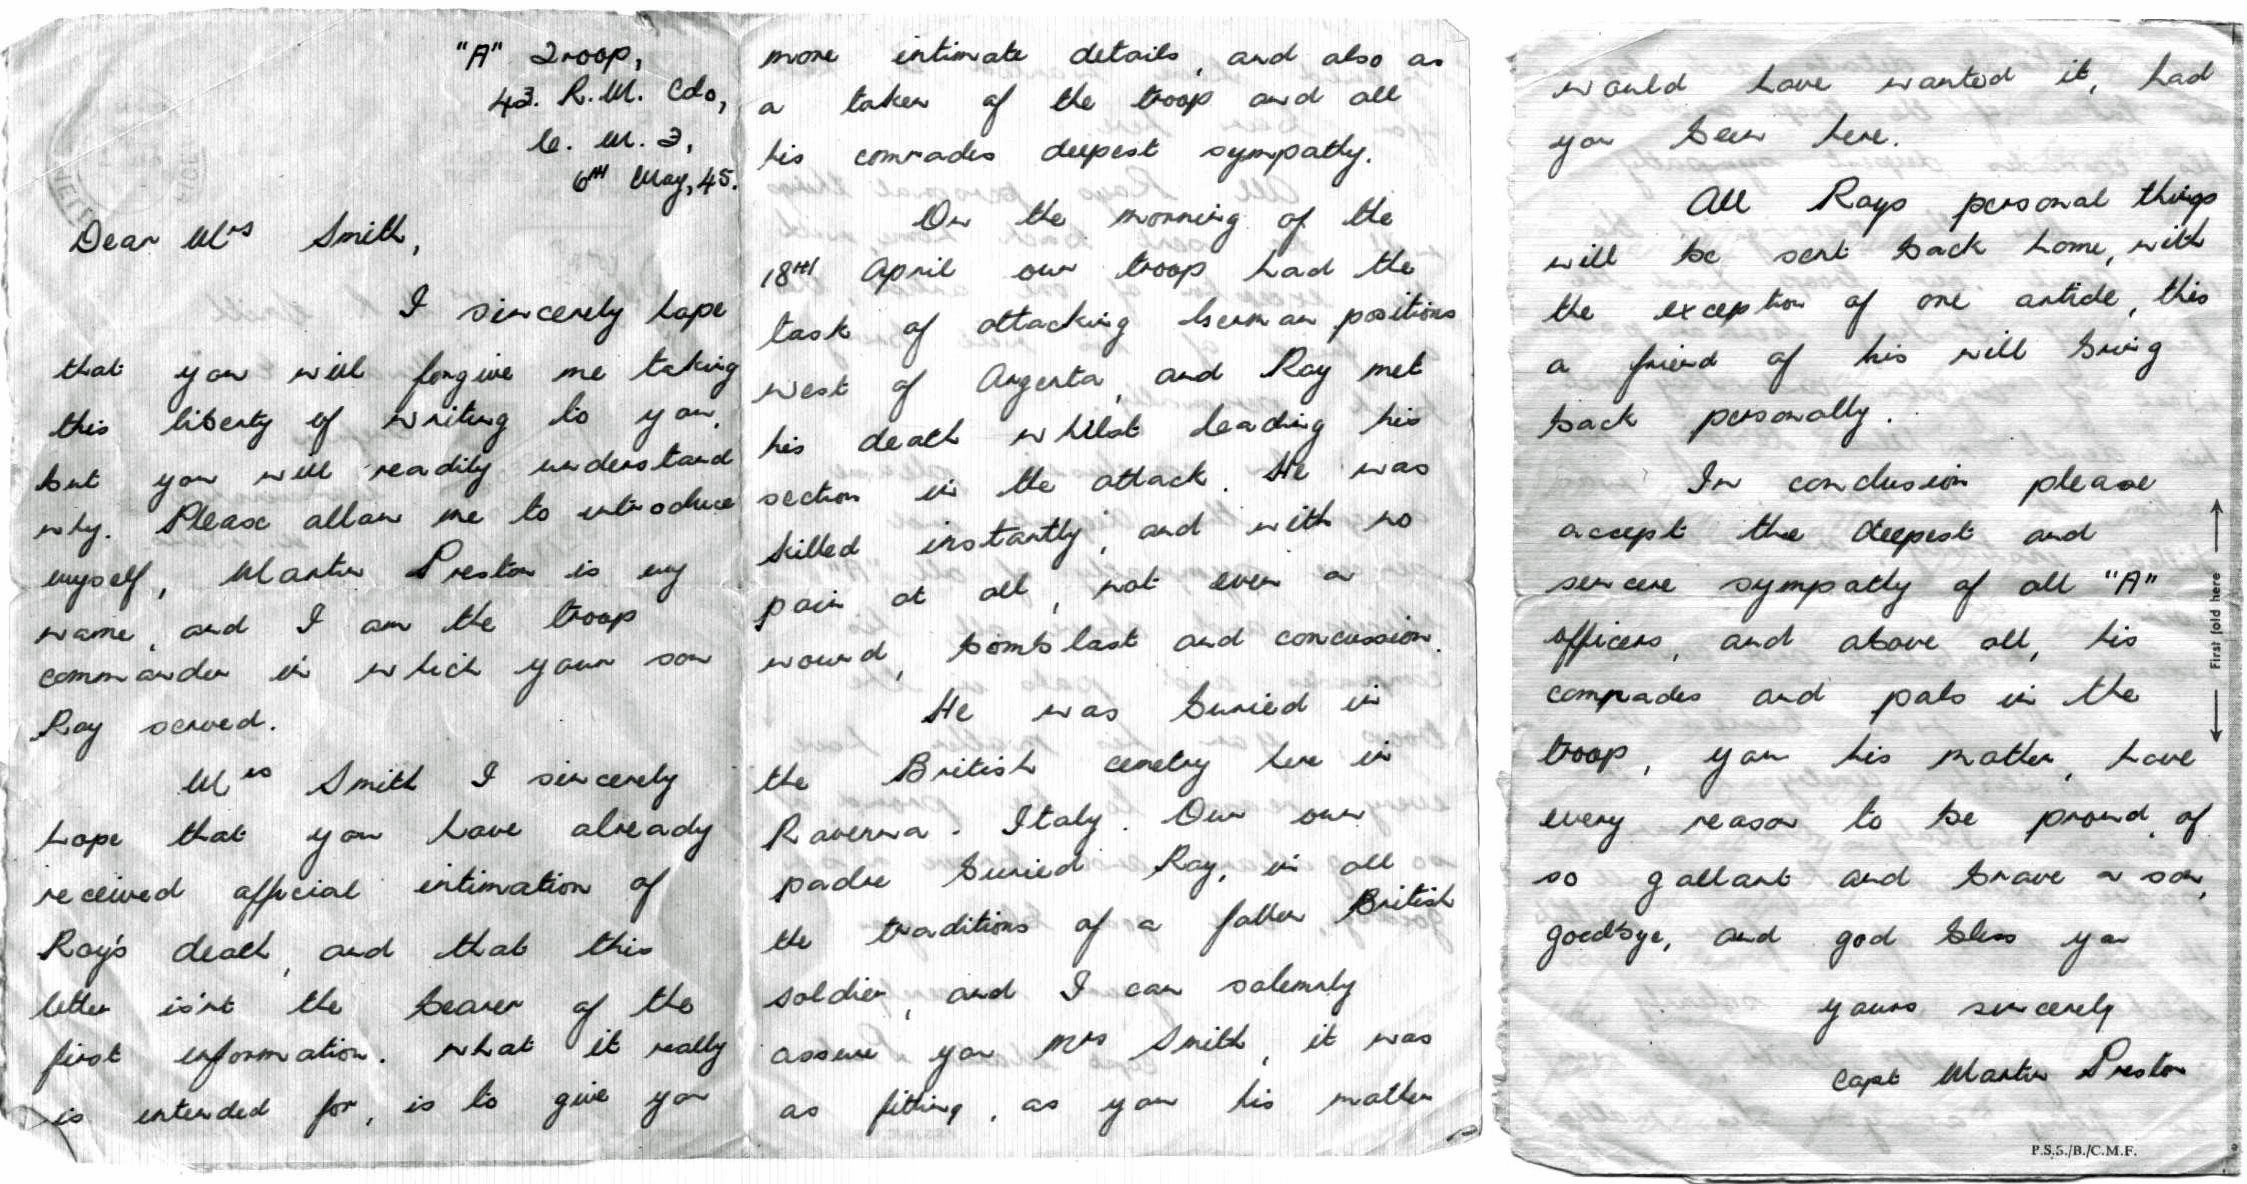 "A" Troop,
43. R.M. Cdo,
C. M. 3,
6TH May, 45.
Dear Mrs Smith,
I sincerely hope
that you will forgive me taking
this liberty of writing to you,
but you will readily understand
why. Please allow me to introduce
myself, Martin Preston is my
name, and I am the troop
commander in which your son
Ray served.
Mrs Smith I sincerely
hope that you have already
received official intimation of
Ray's death, and that this
letter is'nt the bearer of the
first information. What it really
is intended for, is to give you
more intimate details, and also as
a token of the troop and all
his comrades deepest sympathy.
On the morning of the
18TH April our troop had the
task of attacking German positions
west of Argenta, and Ray met
his death whilst leading his
section in the attack. He was
killed instantly, and with no
pain at all, not even a
wound, bomb blast and concussion.
He was buried in
the British cemetry here in
Ravenna. Italy. Our own
padre buried Ray, in all
the traditions of a fallen British
soldier, and I can solemnly
assure you Mrs Smith, it was
as fitting, as you his mother
would have wanted it, had
you been here.
All Rays personal things
will be sent back home, with
the exception of one article, this
a friend of his will bring
back personally.
In conclusion please
accept the deepest and
sincere sympathy of all "A"
officers, and above all, his
comrades and pals in the
troop, you his mother, have
every reason to be proud, of
so gallant and brave a son,
goodbye, and god bless you
yours sincerely
Capt Martin Preston
First fold here
P.S.5./B./C.M.F.